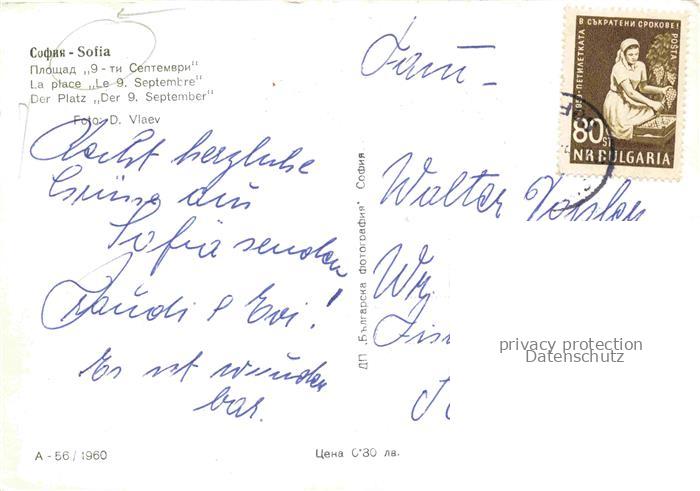 София - Sofia
Площад „9 - ти Септември"
La place „Le 9. Septembre"
Der Platz „Der 9. September"
Foto: D. Vlaev
Recht herzliche
Grüße aus
Sofia senden
&
Evi!
Es ist wunder
bar.
А - 56/1960
Цена 0·30 лв.
ДП „Българска фотография" София
Fam.
Walter
privacy protection
Datenschutz
ПЕТИЛЕТКАТА В СЪКРАТЕНИ СРОКОВЕ!
POSTA
80 ST
NR BULGARIA